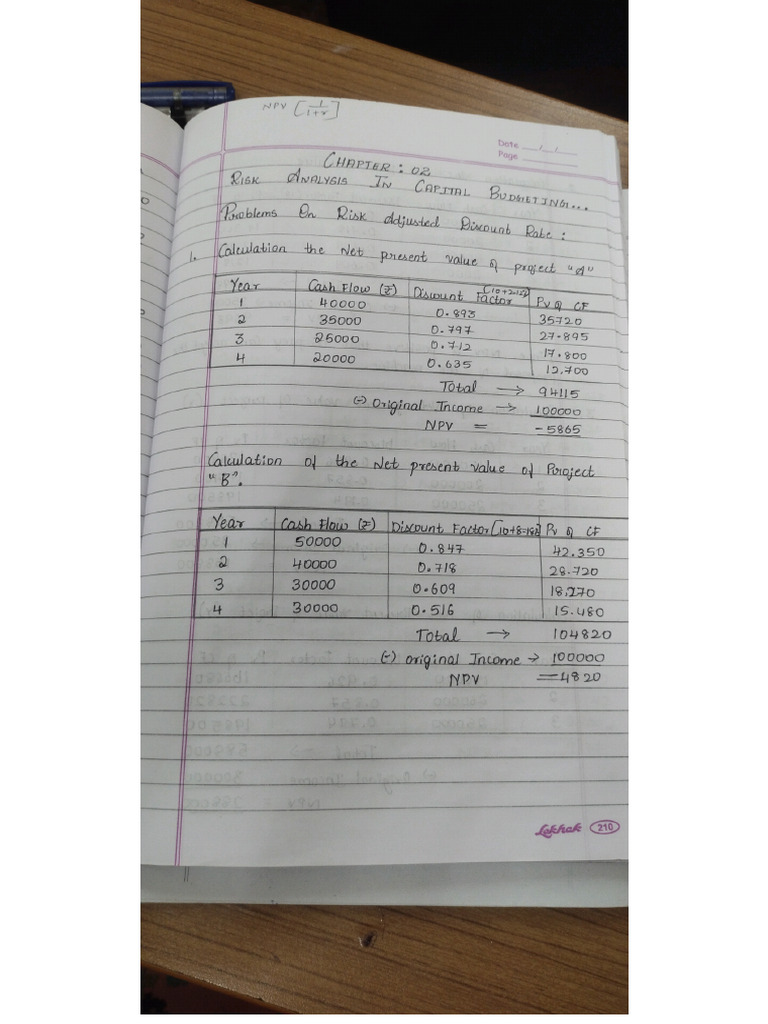 NPV [1/1+r]
Date __/__/__
Page
CHAPTER : 02
RISK ANALYSIS IN CAPITAL BUDGETING...
Problems On Risk adjusted Discount Rate :
1. Calculation the Net present value of project "A"
Year Cash Flow (₹) Discount Factor (10+2=12) PV of CF
1 40000 0.893 35720
2 35000 0.797 27.895
3 25000 0.712 17.800
4 20000 0.635 12.700
Total → 94115
(-) Original Income → 100000
NPV = -5865
Calculation of the Net present value of Project
"B".
Year Cash Flow (₹) Discount Factor [10+8=18%] PV of CF
1 50000 0.847 42.350
2 40000 0.718 28.720
3 30000 0.609 18.270
4 30000 0.516 15.480
Total → 104820
(-) original Income → 100000
NPV = 4820
Lekhak 210